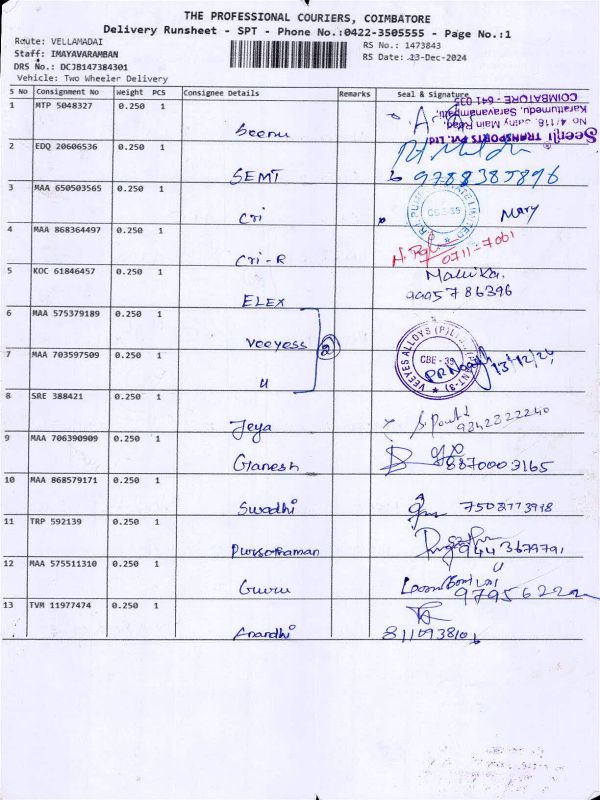 THE PROFESSIONAL COURIERS, COIMBATORE
Delivery Runsheet - SPT - Phone No.:0422-3505555 - Page No.:1
Route: VELLAMADAI
RS No.: 1473843
Staff: IMAYAVARAMBAN
RS Date: 13-Dec-2024
DRS No.: DCJB147384301
Vehicle: Two Wheeler Delivery
S No Consignment No Weight PCS Consignee Details Remarks Seal & Signature
1 MTP 5048327 0.250 1 Seenu
Seenji TRANSPORTS Pvt. Ltd.
Saravanampatti,
COIMBATORE - 641 035
2 EDQ 20606536 0.250 1 SEMT 9788385896
3 MAA 650503565 0.250 1 Cri CBE-35 Mary
4 MAA 868364497 0.250 1 Cri-R
5 KOC 61846457 0.250 1 ELEX Mallika. 9995786396
6 MAA 575379189 0.250 1 Veeyess
2
7 MAA 703597509 0.250 1 u
VEEYES ALLOYS (P)LTD (UNIT-3)
CBE - 35
13/12/24
8 SRE 388421 0.250 1 Jeya 9342322240
9 MAA 706390909 0.250 1 Ganesh 8870003165
10 MAA 868579171 0.250 1 Swadhi
11 TRP 592139 0.250 1 Pursothaman 9443679791
12 MAA 575511310 0.250 1 Guru
13 TVM 11977474 0.250 1 Anandhi